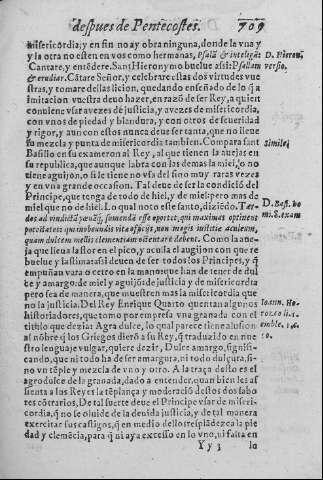 despues de Pentecostes. 709
misericordia; y en fin no ay obra ninguna, donde la vna y
y la otra no esten en vos como hermanas, Psalā & intelligā:
Cantare, y entēdere. San Hieronymo buelue assi: Psallam
& erudiar. Cātare Señor, y celebrare estas dos virtudes vue
stras, y tomare dellas licion, quedando enseñado de lo q̄ à
imitacion vuestra deuo hazer, en razō de ser Rey, a quien
conuiene vsar avezes de justicia, y avezes de misericordia,
con vnos de piedad y blandura, y con otros de seueridad
y rigor, y aun con estos nunca deue ser tanta, que no lleue
su mezcla y punta de misericordia tambien. Compara san
Basilio en su examerō al Rey, al que tienen la auejas en
su republica, que aunque labra con las demas la miel, o no
tiene aguijō, o si le tiene no vsa del sino muy raras vezes
y en vna grande occasion. Tal deue de ser la condiciō del
Principe, que tenga de todo de hiel, y de miel: pero mas de
miel que no de hiel. Lo qual noto esse santo, diziēdo. Tar-
dos ad vindictā
quam dulcem mellis clementiam
ja que lleua la flor en el pico, y oculta el aguijon con que re
buelue y lastima: assi deuen de ser todos los Principes, y q̄
empuñan vara o cetro en la mano: que han de tener de dul
ce y amargo: de miel y aguijō: de justicia y de misericordia
pero sea de manera, que muestren mas la misericordia que
no la justicia. Del Rey Enrique Quarto quentan algunos
historiadores, que tomo por empresa vna granada con el
titulo que dezia: Agra dulce, lo qual parece tiene alusion
al nōbre q̄ los Griegos dierō a su Rey, q̄ traduzido en nue
stro lenguaje vulgar, quiere dezir, Dulce amargo, signifi-
cando, que ni todo ha de ser amargura, ni todo dulçura, si-
no vn tēple y mezcla de vno y otro. A la traça desto es el
agrodulce de la granada, dado a entender, quan bien les as
sienta a los Reyes la tēplança y moderaciō destos dos sabo
res cōtrarios. De tal suerte deue el Principe vsar de miseri-
cordia, q̄ no se oluide de la deuida justicia, y de tal manera
exercitar sus castigos, q̄ en medio dellos resplādezca la pie
dad y clemēcia, para q̄ ni aya excesso en lo vno, ni falta en
Y y 3 lo
D. Hieron.
versio.
Simile.
D. Bas. ho
m. 8. exam